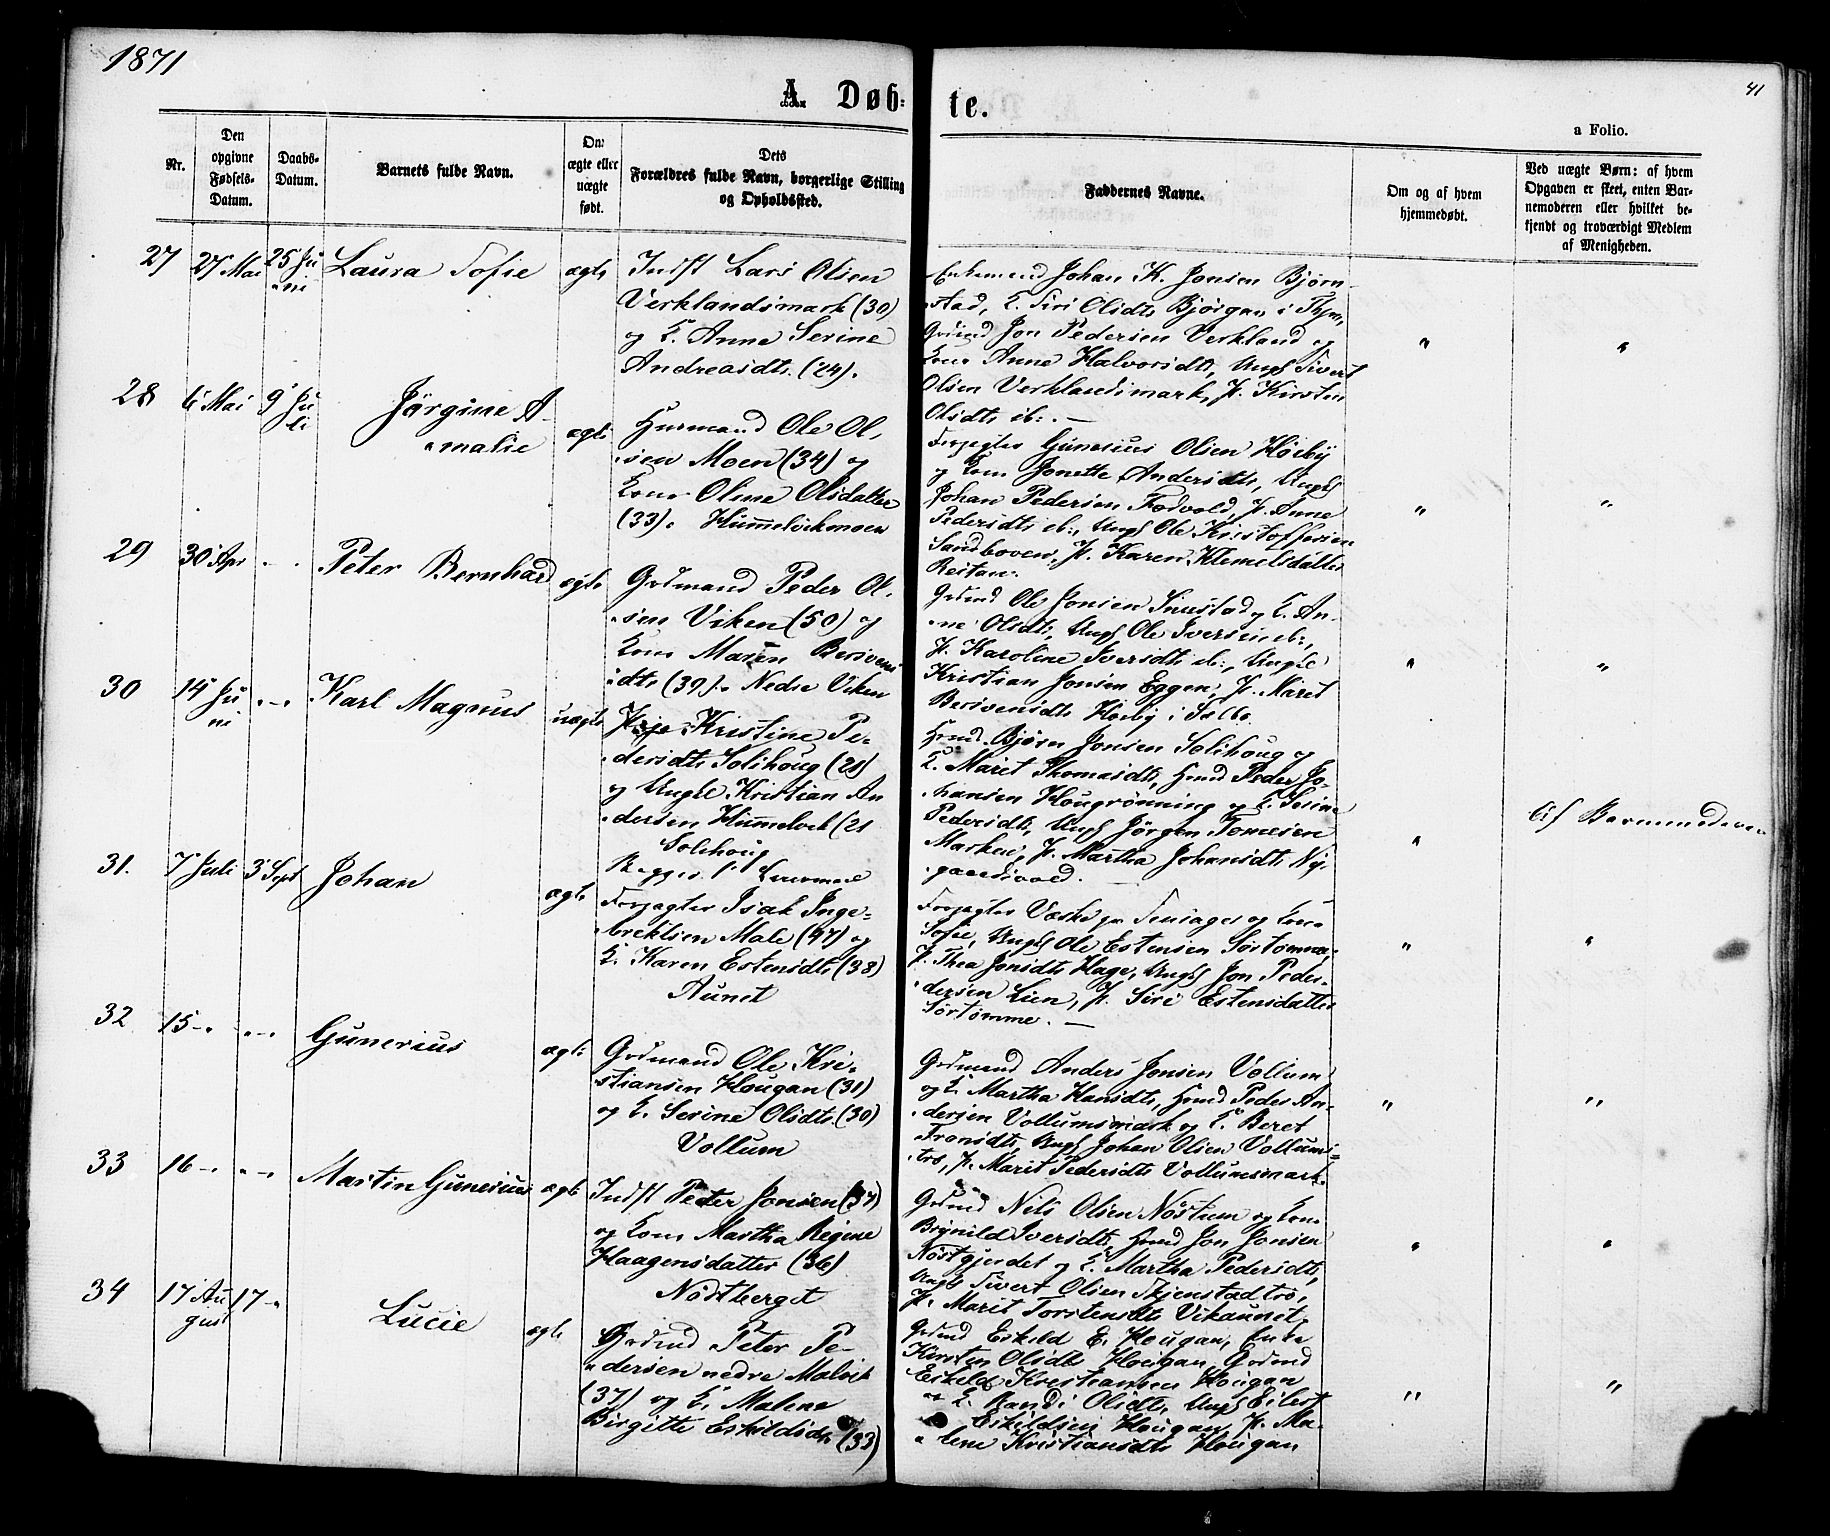 1871
41
A. Døb-
te.
a Folio.
Nr.
Den
opgivne
Fødsels-
Datum.
Daabs-
Datum.
Barnets fulde Navn.
Om
ægte eller
uægte
født.
Dets
Forældres fulde Navn, borgerlige Stilling
og Opholdssted.
Faddernes Navne.
Om og af hvem
hjemmedøbt.
Ved uægte Børn: af hvem
Opgaven er skeet, enten Bar-
nemoderen eller hvilket be-
kjendt og troværdigt Medlem
af Menigheden.
27
27 Mai
25 Ju
ni
Laura Sofie
ægte
Indst Lars Olsen
Verklandsmark (30)
og K. Anne Serine
Andreasdtr. (24).
Enkemand Johan K. Jonsen Bjørn-
stad, K. Siri Olsdtr Bjørgan i
Grdmd Jon Pedersen Verkland og
Kone Anne Halvorsdtr, Ungk Sivert
Olsen Verklandsmark, P. Kirsten
Olsdtr ib:. —
"
"
28
6 Mai
9 Ju
li
Jørgine A-
malie
ægte
Husmand Ole Ol-
sen Moen (34) og
Kone Oline Olsdatter
(33). Hummelvikmoen
Forpagter Gunerius Olsen Høiby
og Kone Jonette Andersdtr, Ungk
Johan Pedersen Fodvold, P. Anne
Pedersdtr ib:, Ungk Ole Kristoffersen
Sandboven, P. Karen Klemetsdatter
Restan.
"
"
29
30 Apr
" "
Peter Bernhard
ægte
Grdmand Peder Ol-
sen Viken (50) og
Kone Maren Berivens
dtr (39). Nedre Viken
Grdmd Ole Jonsen Snustad og K. An-
ne Olsdtr, Ungk Ole Iversen ib:,
P. Karoline Iversdtr ib:, Ungk
Kristian Jonsen Eggen, P. Marit
Berivensdtr Høiby i Selbo.
"
"
30
14 Ju
ni
" "
Karl Magnus
uægte
Pige Kristine Pe-
dersdtr Solihoug (21)
og Ungk. Kristian An
dersen Hummelvik (21
Solihoug
Begges 1ste Leiermaal
Hmd. Bjørn Jonsen Solihoug og
K. Marit Thomasdtr, Hmd Peder Jo-
hansen Hougrønning og K. Serine
Pedersdtr, Ungk Jørgen Tomesen
Marken, P. Martha Johansdtr Ny-
gaardsvold.
"
Af Barnemoderen
31.
7 Juli
3 Sept
Johan
ægte
Forpagter Isak Inge-
brektsen Male (47) og
K. Karen Estensdtr (38)
Aunet
Forpagter og Kone
Sofie, Ungk Ole Estensen Sørtømme,
P. Thea Jonsdtr Hage, Ungk Jon Peder-
dersen Lien, P. Siri Estensdatter
Sørtømme. —
"
"
32
15 - "
" - "
Gunerius
ægte
Grdmand Ole Kri-
stiansen Hougan (31)
og K. Serine Olsdtr. (30)
Vollum
Grdmand Anders Jonsen Vollum
og K. Martha Hansdtr, Hmd Peder An-
dersen Vollumsmark og K. Beret
Fransdtr, Ungk Johan Olsen Vollums-
trø, P. Marit Pedersdtr Vollumsmark.
"
"
33
16 - "
" - "
Martin Gunerius
ægte
Indst Peter Jonsen (37)
og Kone Martha Regine
Haagensdatter (36)
Nøstberget
Grdmd Nils Olsen Nøstum og Kone
Brynild Iversdtr, Hmd Jon Jonsen
Nøstgjerdet og K. Martha Pedersdtr,
Ungk Sivert Olsen Skjenstadtrø,
P. Marit Torstensdtr Vikaunet.
"
"
34
17 Au
gust
17 - "
Lucie
ægte
Grdmd Peter Pe-
dersen nedre Malvik
(37) og K. Malene
Birgitte Eskildsdtr (33)
Grdmd Eskild E. Hougan, Enke
Kirsten Olsdtr Hougan, Grdmd
Eskild Kristiansen Hougan
og K. Randi Olsdtr, Ungk Eilert
Eskildsen Hougan, P. Ma-
lene Kristiansdtr Hougan
"
"